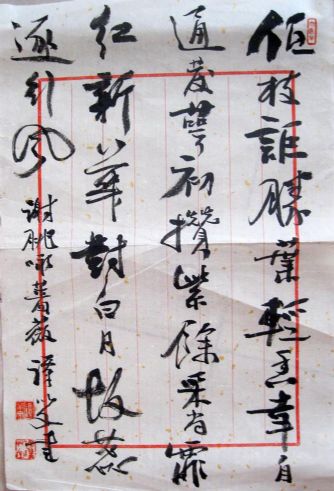 低枝詎勝葉輕香幸自
通發萼初攢紫餘采尚霏
紅新華對白日故蕊
逐行風
謝朓詠薔薇